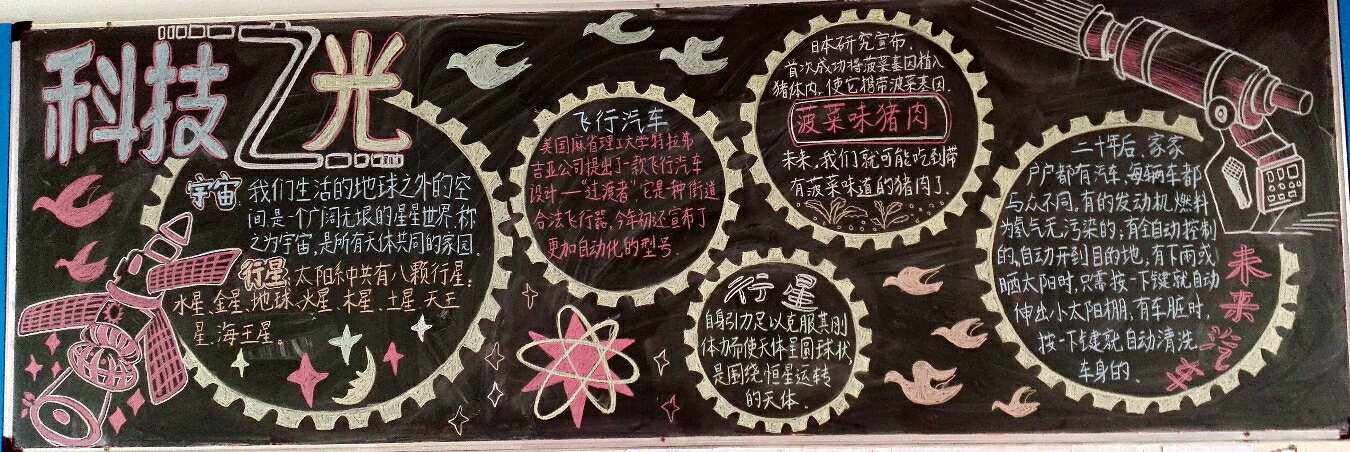 科技之光
宇宙 我们生活的地球之外的空
间是一个广阔无垠的星星世界.称
之为宇宙,是所有天体共同的家园.
行星:太阳系中共有八颗行星:
水星、金星、地球、火星、木星、土星、天王
星、海王星。
飞行汽车
美国麻省理工大学特拉弗
吉亚公司提出了一款飞行汽车
设计——“过渡者”,它是一种街道
合法飞行器,今年初还宣布了
更加自动化的型号.
日本研究宣布.
首次成功将菠菜基因植入
猪体内.使它携带菠菜基因.
菠菜味猪肉
未来,我们就可能吃到带
有菠菜味道的猪肉了.
行星
自身引力足以克服其刚
体力而使天体呈圆球状,
是围绕恒星运转
的天体.
二十年后.家家
户户都有汽车,每辆车都
与众不同,有的发动机燃料
为氢气无污染的,有全自动控制
的,自动开到目的地,有下雨或
晒太阳时,只需按一下键就自动
伸出小太阳棚,有车脏时,
按一下键就自动清洗
车身的.
未来